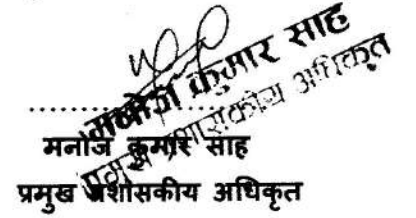 मनोज कुमार साह
प्रमुख प्रशासकीय अधिकृत
....................
मनोज कुमार साह
प्रमुख प्रशासकीय अधिकृत